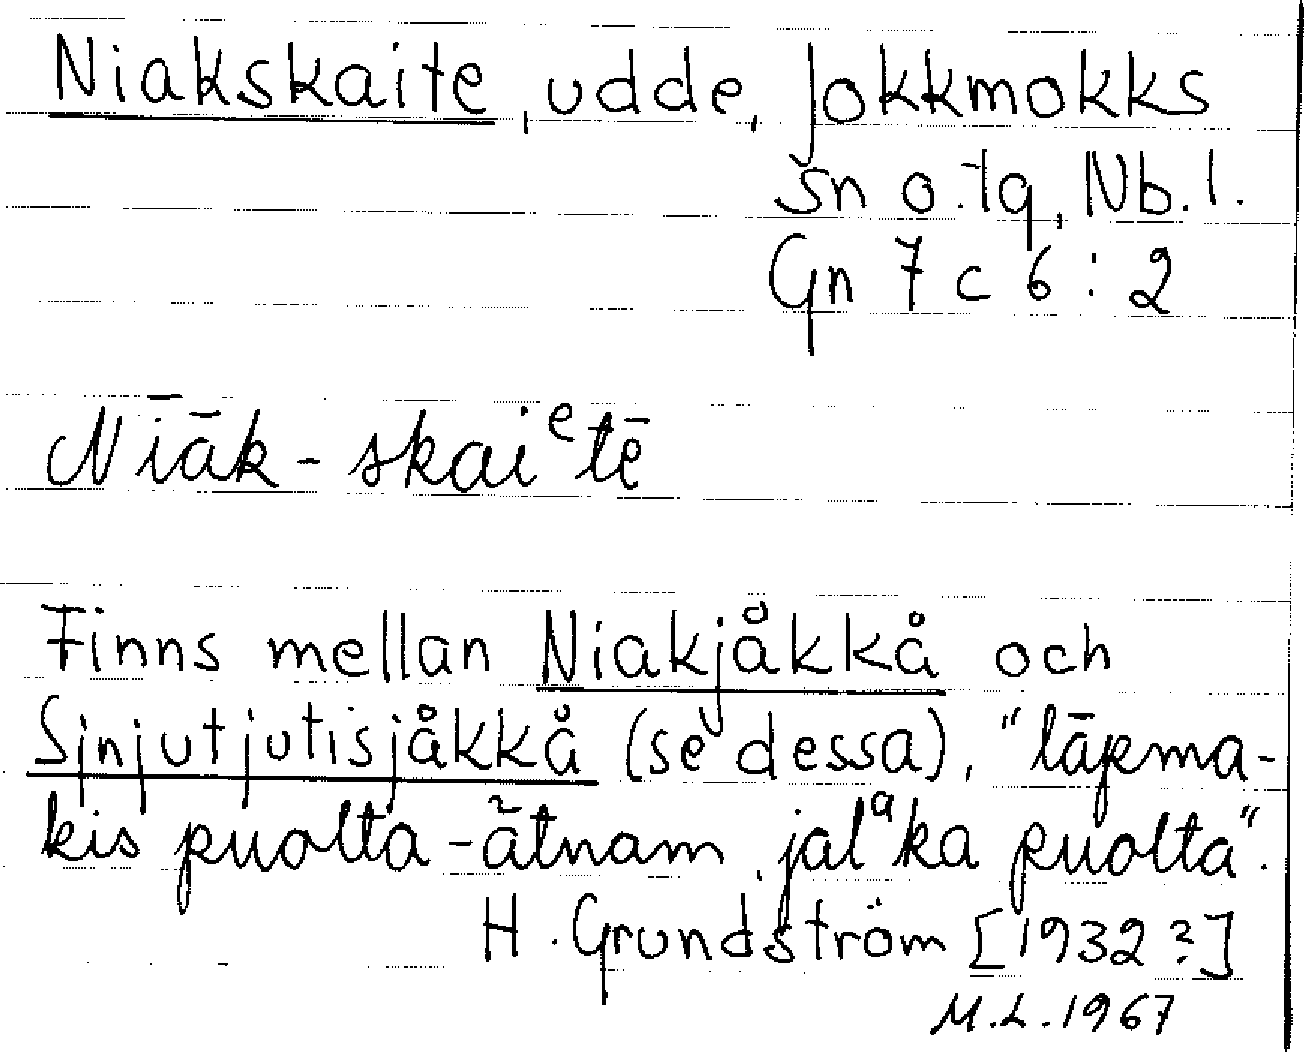 Niakskaite, udde, Jokkmokks
sn o. tg, Nb. l.
Gn 7 c 6 : 2
Nīāk-skaiᵉtē
Finns mellan Niakjåkkå och
Sjnjutjutisjåkkå (se dessa), "lāpma-
kis puolta-ātnam, jalᵃka puolta".
H. Grundström [1932?]
M.L. 1967